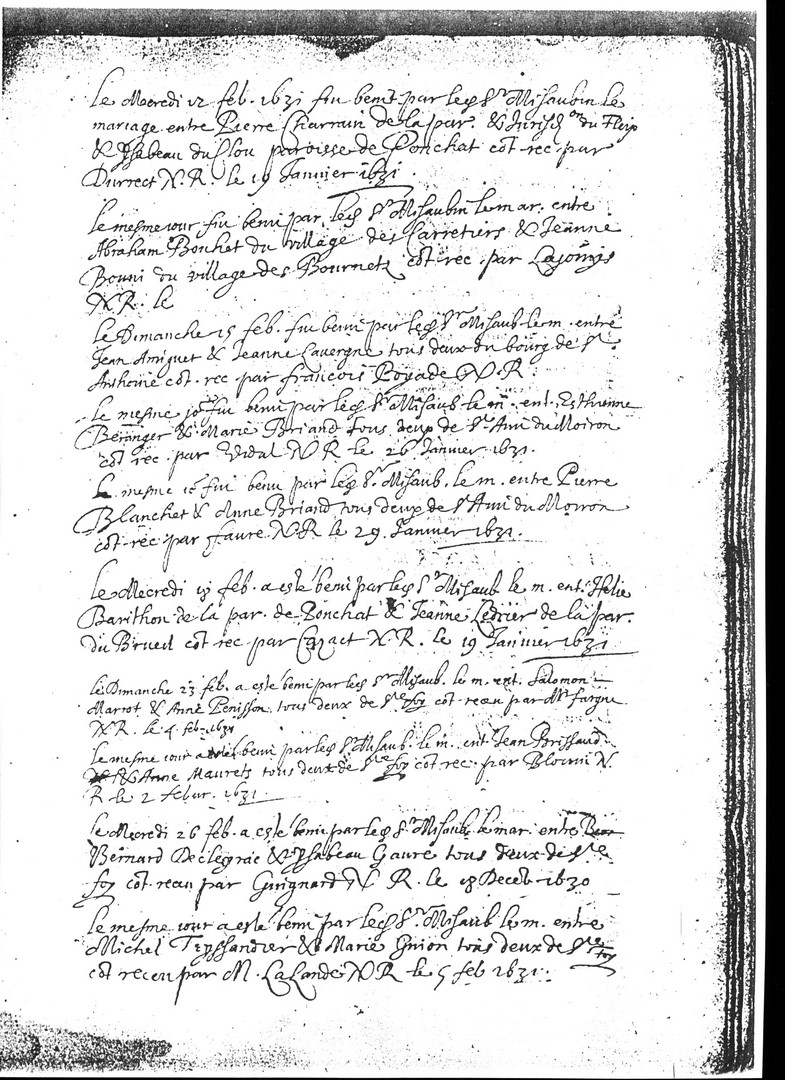 Le Mecredi 12 feb. 1631 fiu benit par led Sr Misaubin le
mariage entre Pierre Charrain de la par. & Jurisd on du Fleix
& Ysabeau du Clou paroisse de Ponchat cot rec par
Durrect N.R. le 19 Janvier 1631
Le mesme iour fiu beni par led Sr Misaubin le mar. entre
Abraham Bonhet du village des Carretiers & Jeanne
Bouni du village des Bournetz cot rec par Lajonys
N.R. le
Le Dimanche 15 feb. fiu beni par led Sr Misaub le m. entre
Jean Amiguet & Jeanne Lavergne tous deux du bourg de St
Anthoine cot. rec par francois Poyade N.R
Le mesme jor fiu beni par led Sr Misaub le m. ent. Esthienne
Beranger & Marie Briand tous deux de St Avi du Moiron
cot rec par Vidal N R le 26 Janvier 1631.
Le mesme fiu beni par led Sr Misaub. le m. entre Pierre
Blanchet & Anne Briand tous deux de St Avi du Moiron
cot rec par faure N.R le 29 Janvier 1631.
Le Mecredi feb. a esté beni par led Sr Misaub le m. ent. Helie
Barithon de la par. de Ponchat & Jeanne Ledrier de la par.
du Brueil cot rec par N.R. le 19 Janvier 1631
Le Dimanche 23 feb. a esté beni par led Sr Misaub. le m. ent. Salomon
Marrot & Anne Penisson tous deux de Ste foy cot receu par Mr fargue
N.R. le 4 feb 1631
Le mesme iour a esté beni par led Sr Misaub. le m. ent Jean Brissaud
& Anne Maurets tous deux de Ste foy cot rec. par Blouin N.
R le 2 febur. 1631
Le Mecredi 26 feb. a esté beni par led Sr Misaub. le mar. entre
Bernard Declegrie & Ysabeau Gaure tous deux de Ste
foy cot receu par Guignard N R. le 18 Deceb 1630
Le mesme iour a esté beni par led Sr Misaub le m. entre
Michel Teyssandier & Marie Guion tous deux de Ste foy
cot receu par M. LaLande N R le 5 feb 1631.